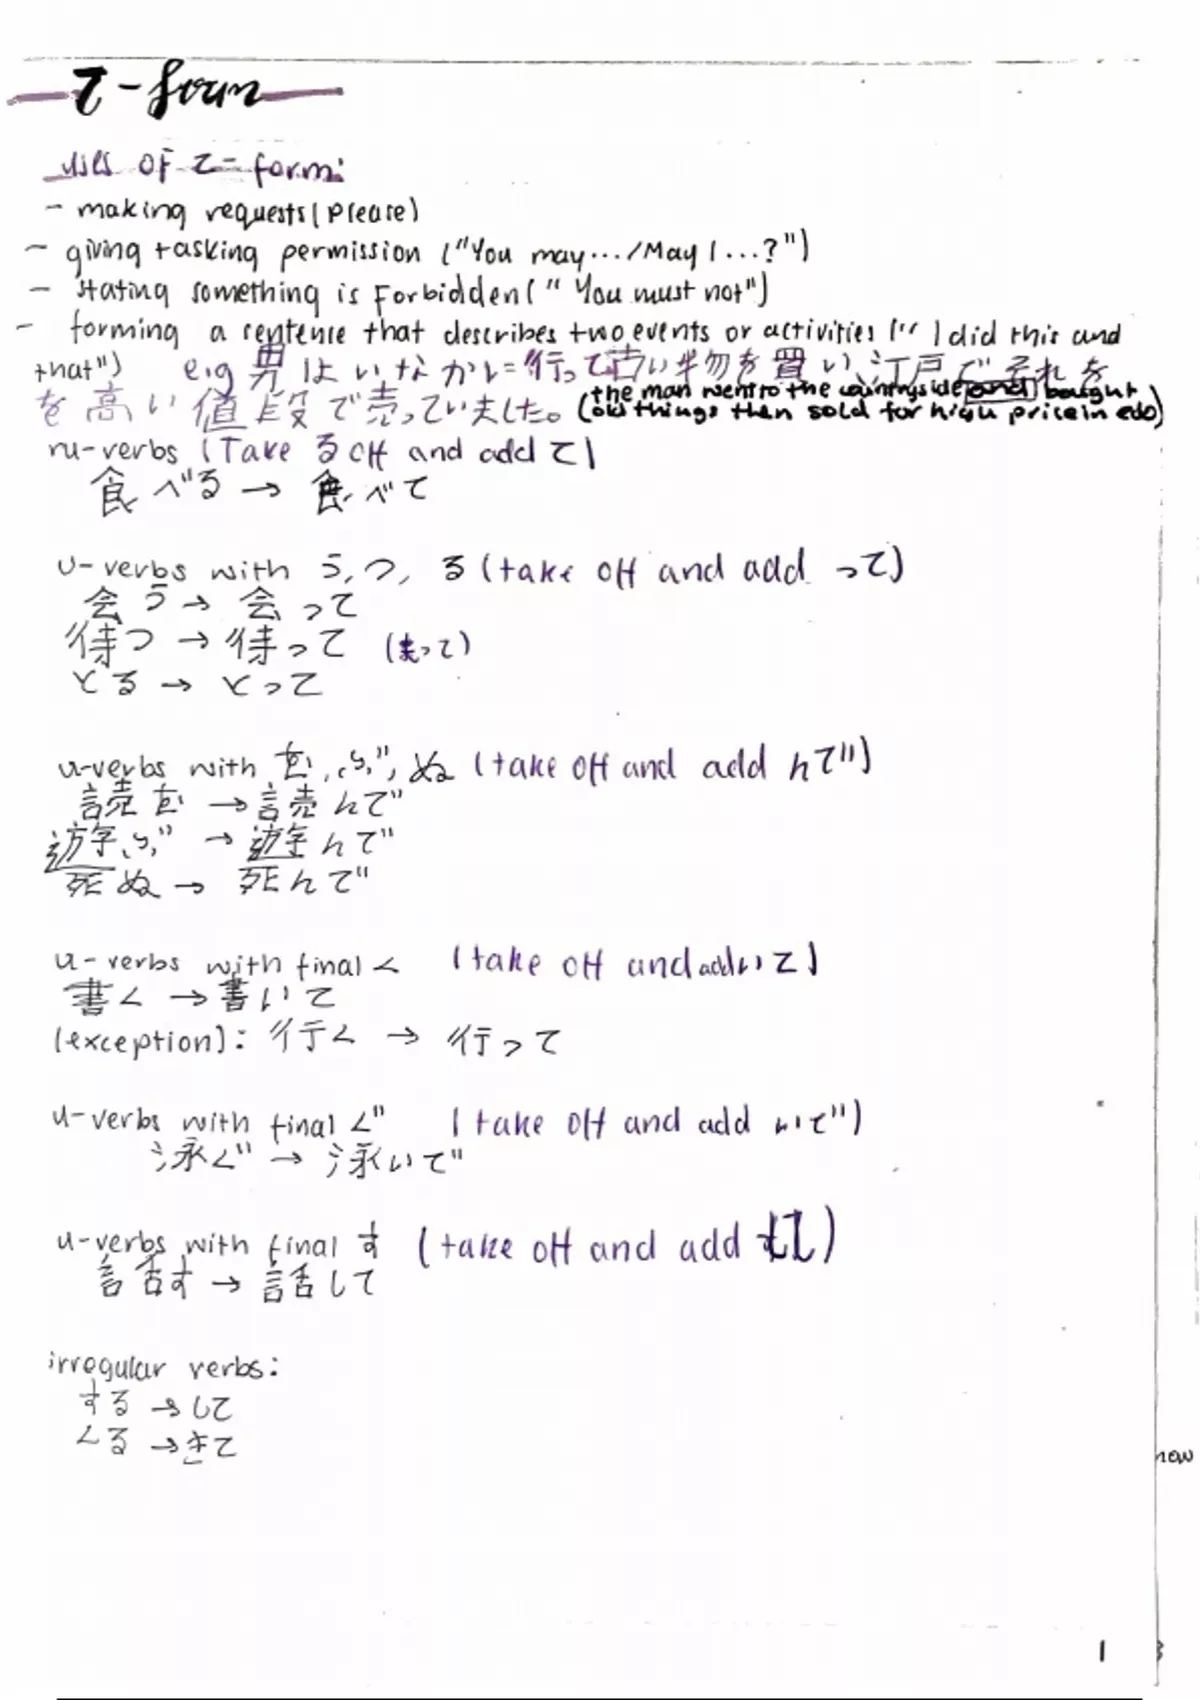 て-form
uses of て-form:
- making requests (please)
- giving + asking permission ("You may.../May I...?")
- stating something is forbidden ("You must not")
- forming a sentence that describes two events or activities ("I did this and
that") e.g 男はいなかに行って古い物を買い、江戸でそれを
を高い値段で売っていました。(the man went to the countryside and bought
old things then sold for high price in edo)
ru-verbs (Take る off and add て)
食べる → 食べて
u-verbs with う, つ, る (take off and add って)
会う → 会って
待つ → 待って (まって)
とる → とって
u-verbs with む, ぶ, ぬ (take off and add んで)
読む → 読んで
遊ぶ → 遊んで
死ぬ → 死んで
u-verbs with final く (take off and add いて)
書く → 書いて
(exception): 行く → 行って
u-verbs with final ぐ (take off and add いで)
泳ぐ → 泳いで
u-verbs with final す (take off and add して)
話す → 話して
irregular verbs:
する → して
くる → きて
now
1